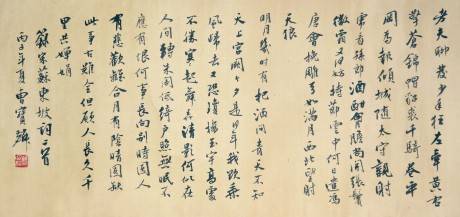 老夫聊發少年狂左牽黃右
擎蒼錦帽貂裘千騎卷平
岡為報傾城隨太守親射
虎看孫郎酒酣胸膽尚張鬢
微霜又何妨持節雲中何日遣馮
唐會挽雕弓如滿月西北望射
天狼
明月幾時有把酒問青天不知
天上宮闕今夕是何年我欲乘
風歸去又恐瓊樓玉宇高處
不勝寒起舞弄清影何似在
人間轉朱閣低綺戶照無眠不
應有恨何事長向別時圓人
有悲歡離合月有陰晴圓缺
此事古難全但願人長久千
里共嬋娟
錄宋蘇東坡詞二首
丙子年夏曾寶麟